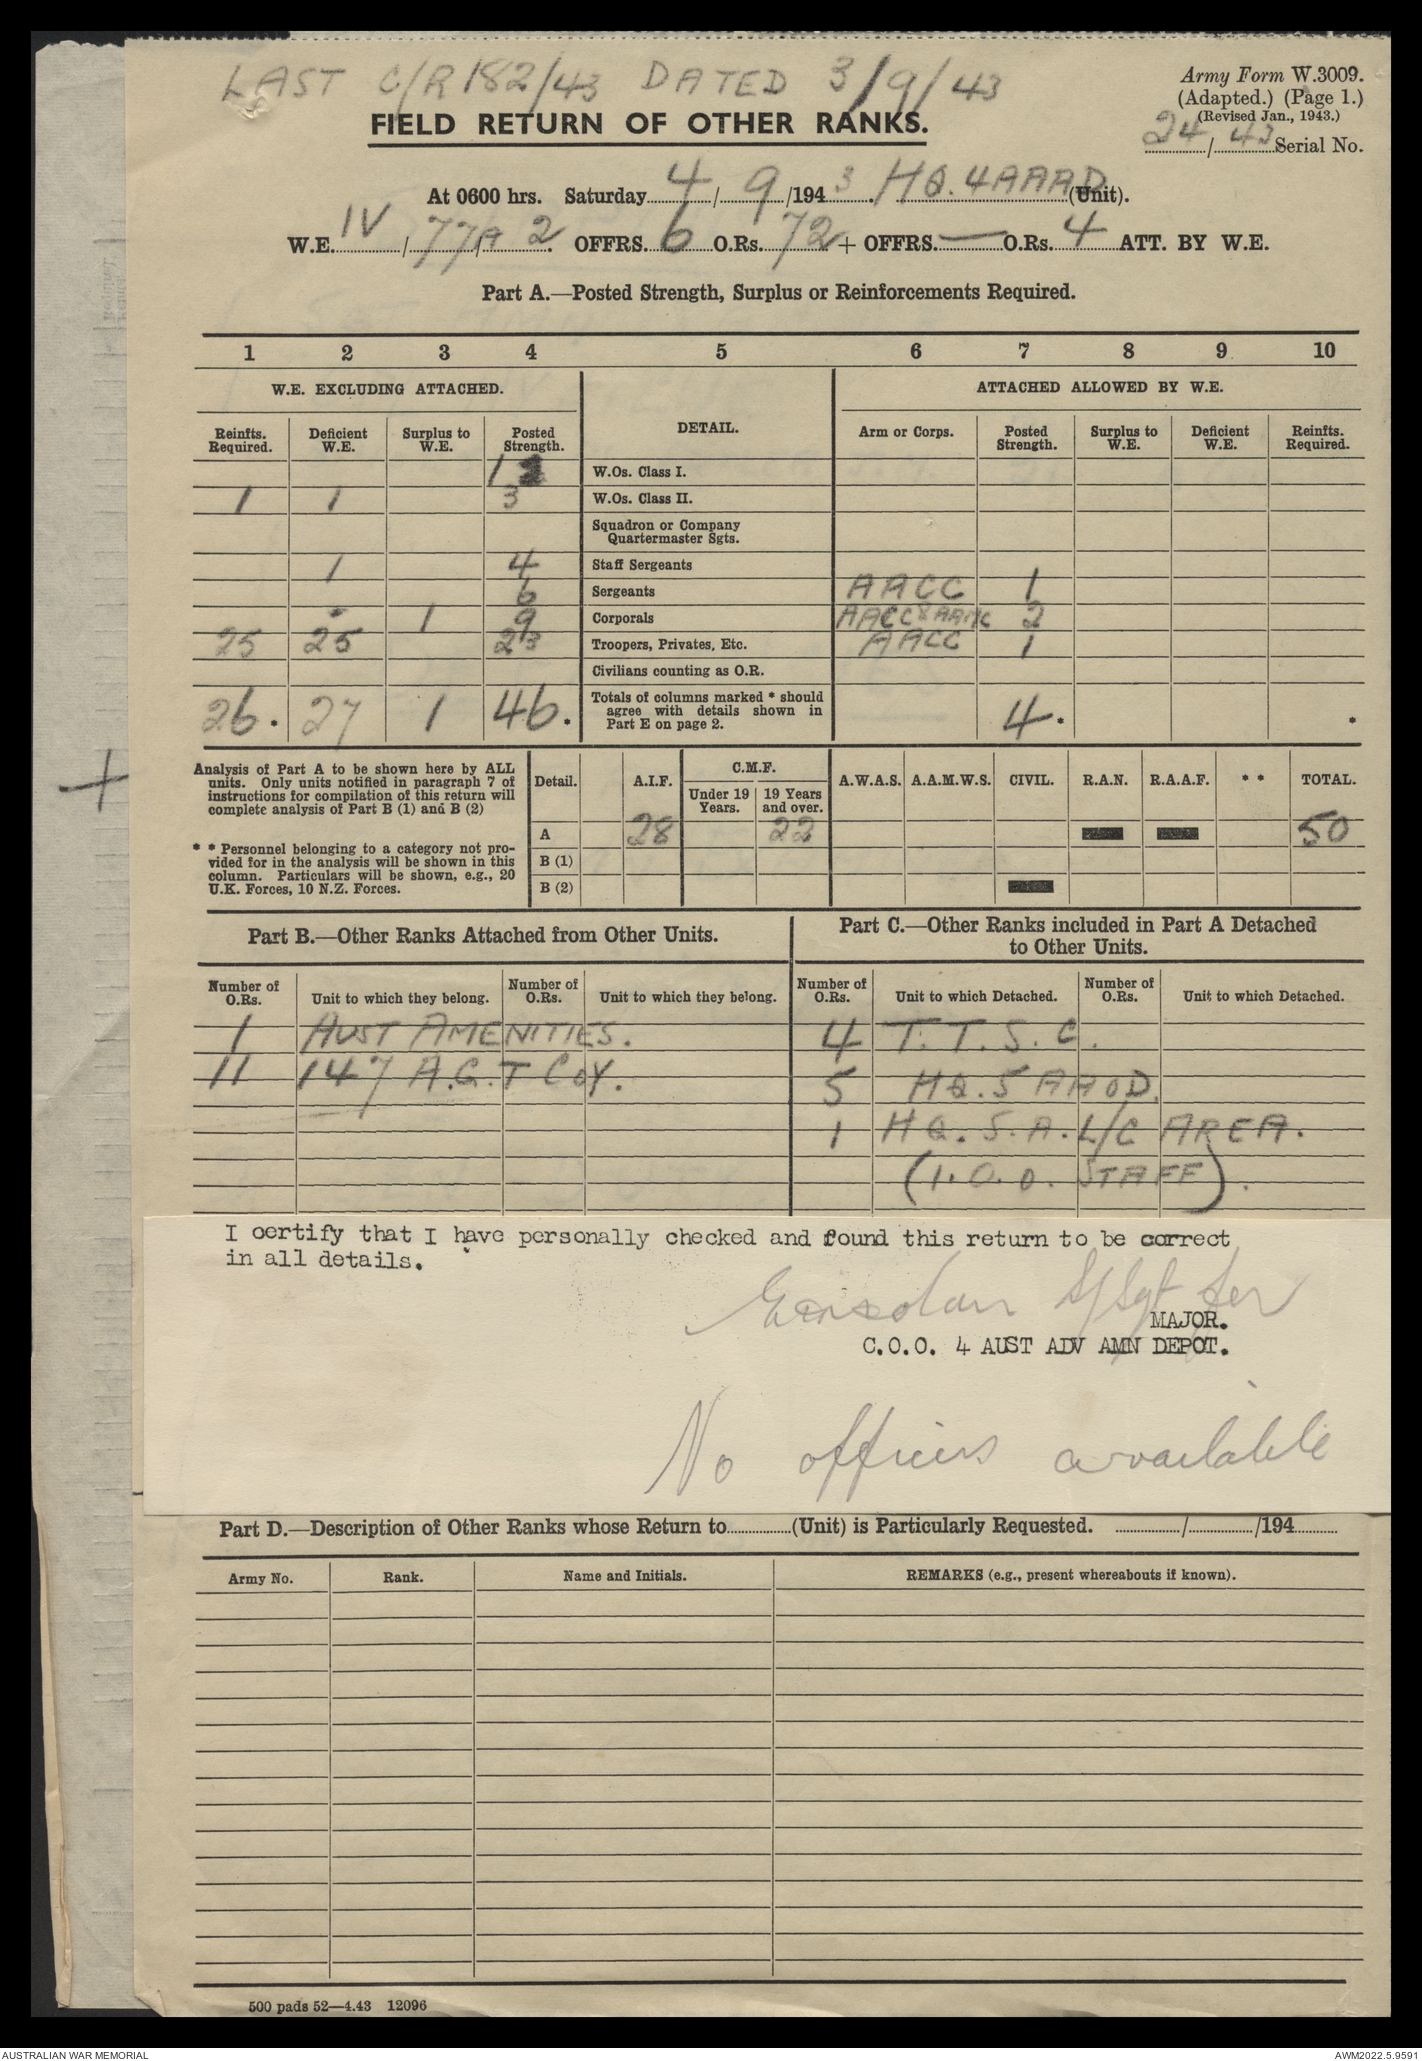 LAST C/R 182/43 DATED 3/9/43
Army Form W.3009.
(Adapted.) (Page 1.)
(Revised Jan., 1943.)
24/43 Serial No.
FIELD RETURN OF OTHER RANKS.
At 0600 hrs. Saturday 4/9/1943. HQ. 4 AAAD (Unit).
W.E. IV/77A/2. OFFRS. 6 O.Rs. 72 + OFFRS. — O.Rs. 4 ATT. BY W.E.
Part A.—Posted Strength, Surplus or Reinforcements Required.
1 2 3 4 5 6 7 8 9 10
W.E. EXCLUDING ATTACHED. DETAIL. ATTACHED ALLOWED BY W.E.
Reinfts. Required. Deficient W.E. Surplus to W.E. Posted Strength. Arm or Corps. Posted Strength. Surplus to W.E. Deficient W.E. Reinfts. Required.
1 W.Os. Class I.
1 1 3 W.Os. Class II.
Squadron or Company
Quartermaster Sgts.
1 4 Staff Sergeants
6 Sergeants AACC 1
- 1 9 Corporals AACC & AAMC 2
25 25 23 Troopers, Privates, Etc. AACC 1
Civilians counting as O.R.
26. 27 1 46. Totals of columns marked * should agree with details shown in Part E on page 2. 4. *
Analysis of Part A to be shown here by ALL
units. Only units notified in paragraph 7 of
instructions for compilation of this return will
complete analysis of Part B (1) and B (2)
* * Personnel belonging to a category not pro-
vided for in the analysis will be shown in this
column. Particulars will be shown, e.g., 20
U.K. Forces, 10 N.Z. Forces.
Detail. A.I.F. C.M.F. A.W.A.S. A.A.M.W.S. CIVIL. R.A.N. R.A.A.F. * * TOTAL.
Under 19 Years. 19 Years and over.
A 28 22 50
B (1)
B (2)
Part B.—Other Ranks Attached from Other Units.
Part C.—Other Ranks included in Part A Detached
to Other Units.
Number of O.Rs. Unit to which they belong. Number of O.Rs. Unit to which they belong. Number of O.Rs. Unit to which Detached. Number of O.Rs. Unit to which Detached.
1 AUST AMENITIES. 4 T.T.S.C.
11 147 A.G.T COY. 5 HQ. 5 AAOD.
1 HQ. S.A. L/C AREA.
(I.O.O. STAFF).
I certify that I have personally checked and found this return to be correct
in all details.
S/Sgt for
MAJOR.
C.O.O. 4 AUST ADV AMN DEPOT.
No officers available
Part D.—Description of Other Ranks whose Return to............(Unit) is Particularly Requested. ............/............/194......
Army No. Rank. Name and Initials. REMARKS (e.g., present whereabouts if known).
500 pads 52—4.43 12096
AUSTRALIAN WAR MEMORIAL
AWM2022.5.9591